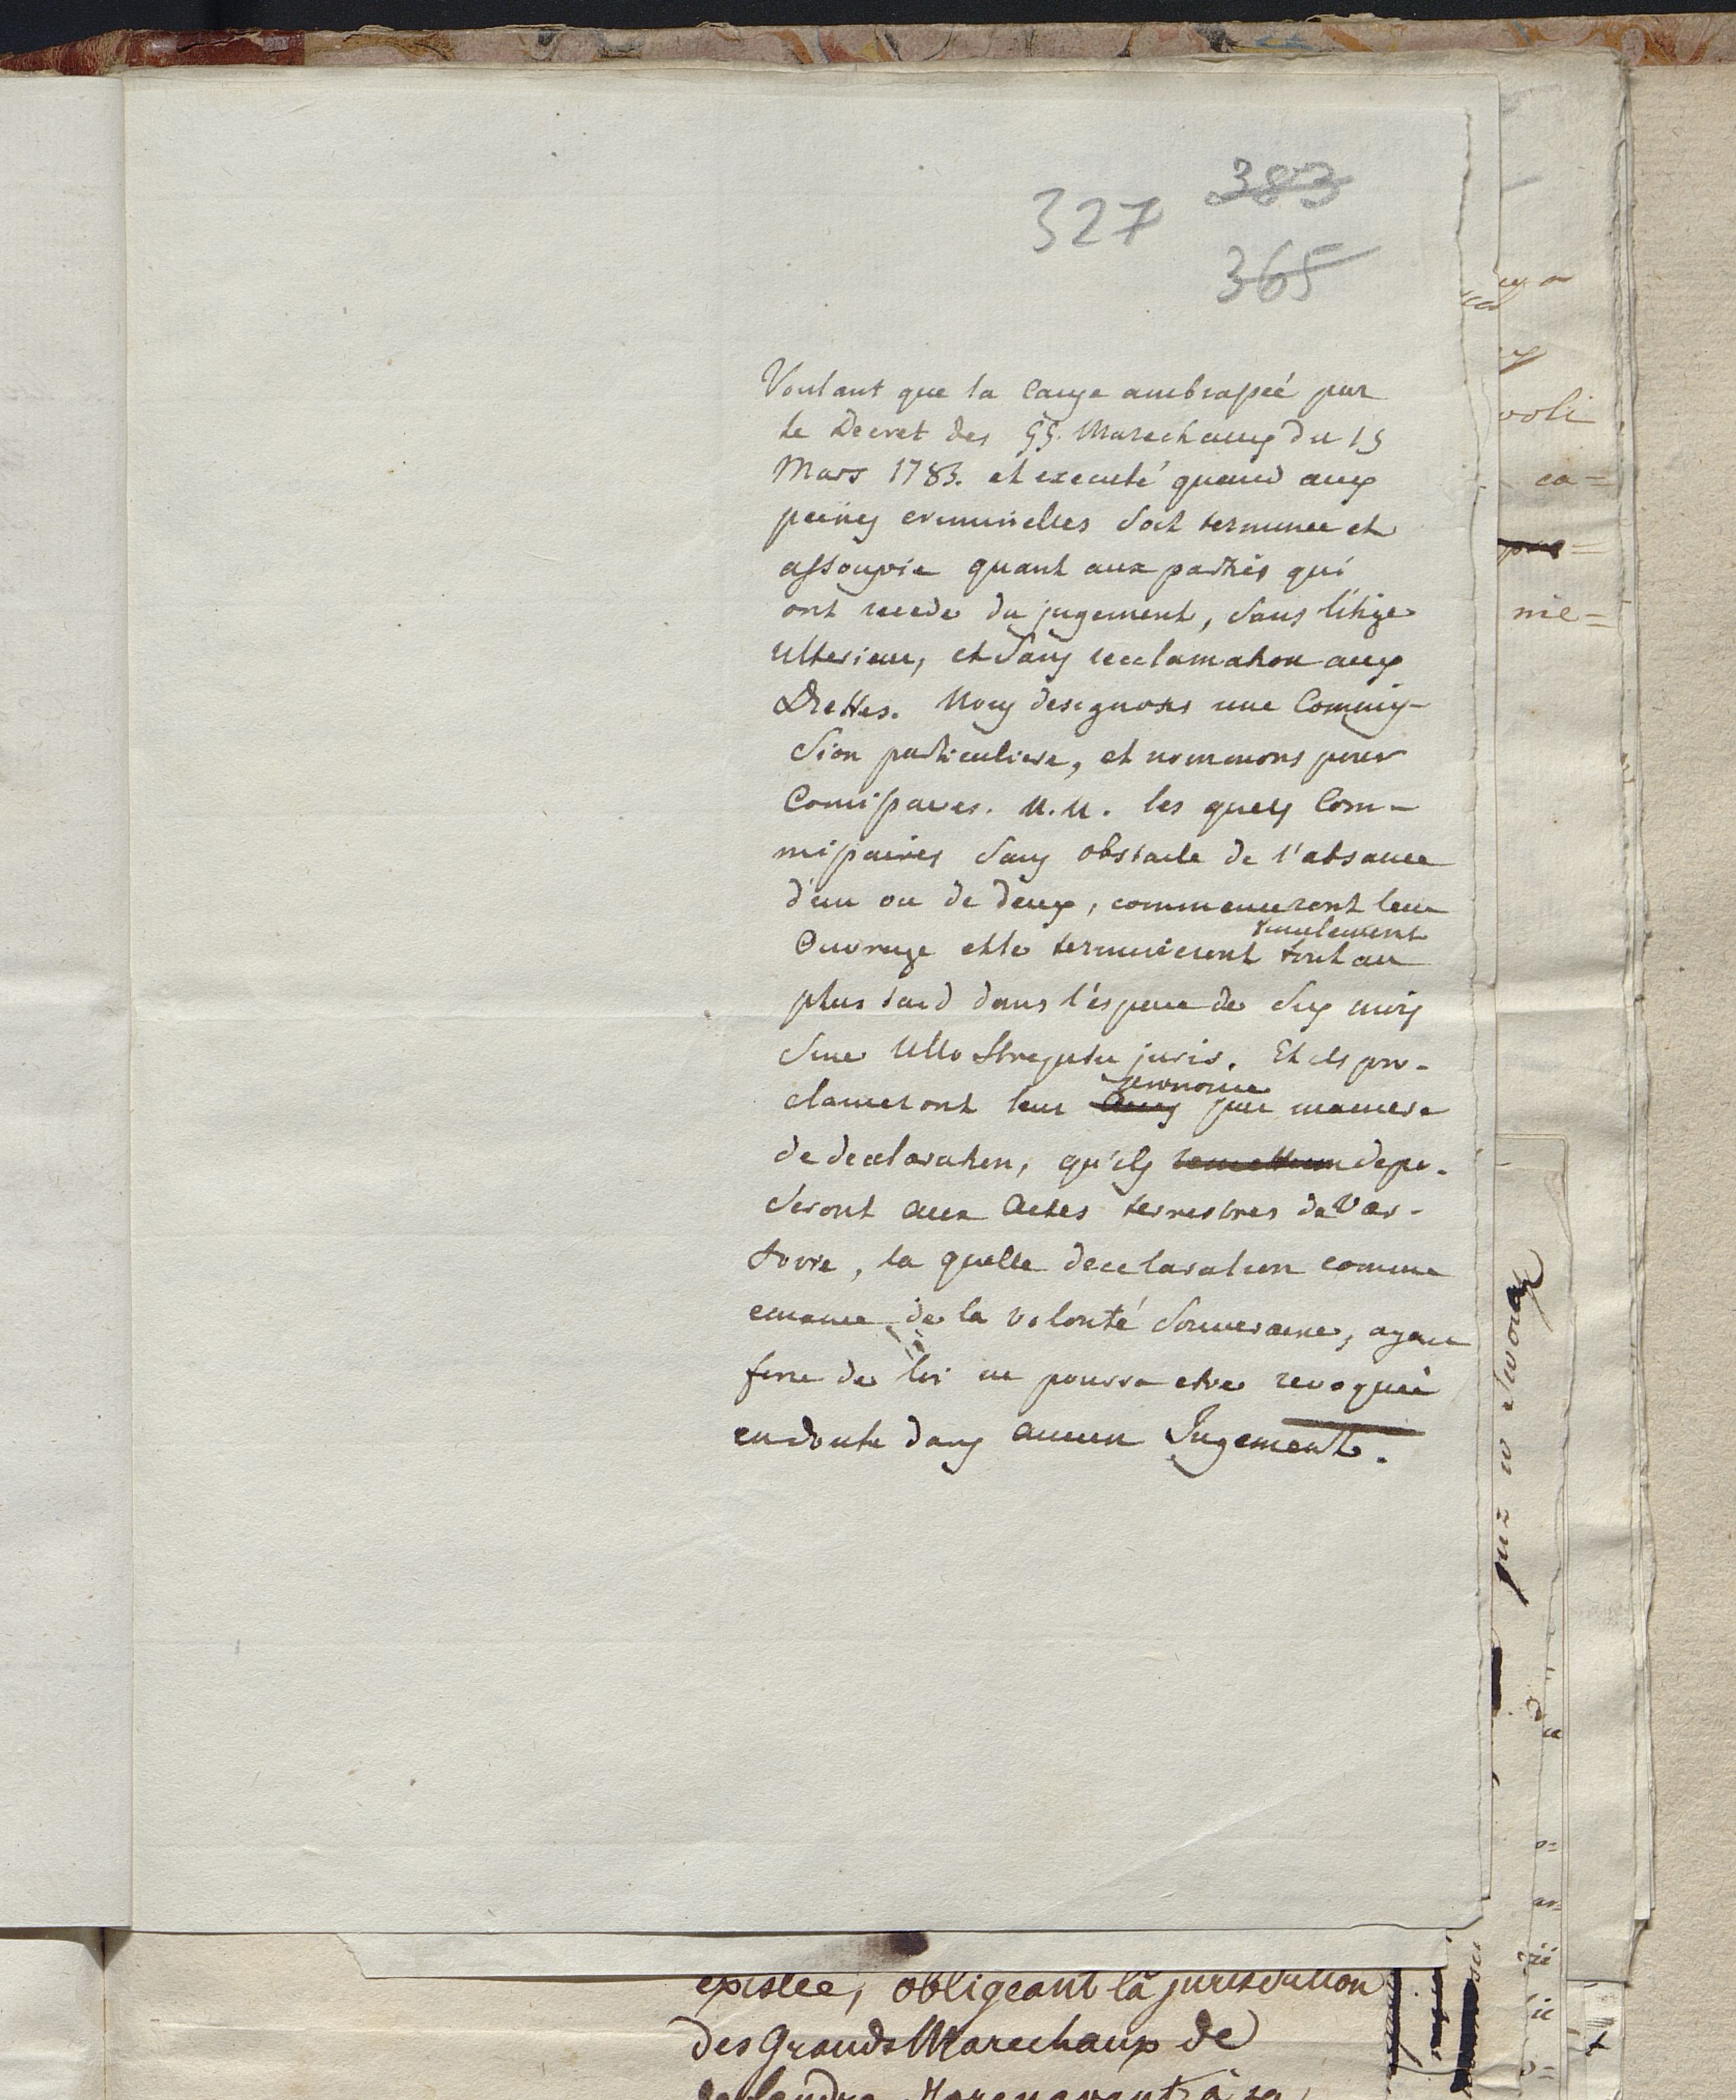 327 383
365
Voulant que la Cause ambrassée par
le Decret des GG. Marechaux du 15
Mars 1783. et executé quand aux
peines criminelles soit terminee et
assoupie quant aux parties qui
ont recede du jugement, sans litige
ulterieur, et sans reclamation aux
Diettes. Nous designons une Commis-
sion particuliere, et nommons pour
Comissaires. N.N. les quels Com-
missaires sans obstacle de l'absance
d'un ou de deux, commenceront leur
seulement
Ouvrage et le termineront tout au
plus tard dans l'espace de six mois
sine ullo strepitu juris. Et ils pro-
clameront leur par maniere
de declaration, qu'ils depo-
seront aux Actes terrestres de Var-
sovie, la quelle declaration comme
emanee de la volonté Souveraine, ayant
force de loi ne pourra etre revoquée
en doute dans aucun Jugement.
voli
ca=
nie=
existée, obligeant la jurisdiction
des Grands Marechaux de